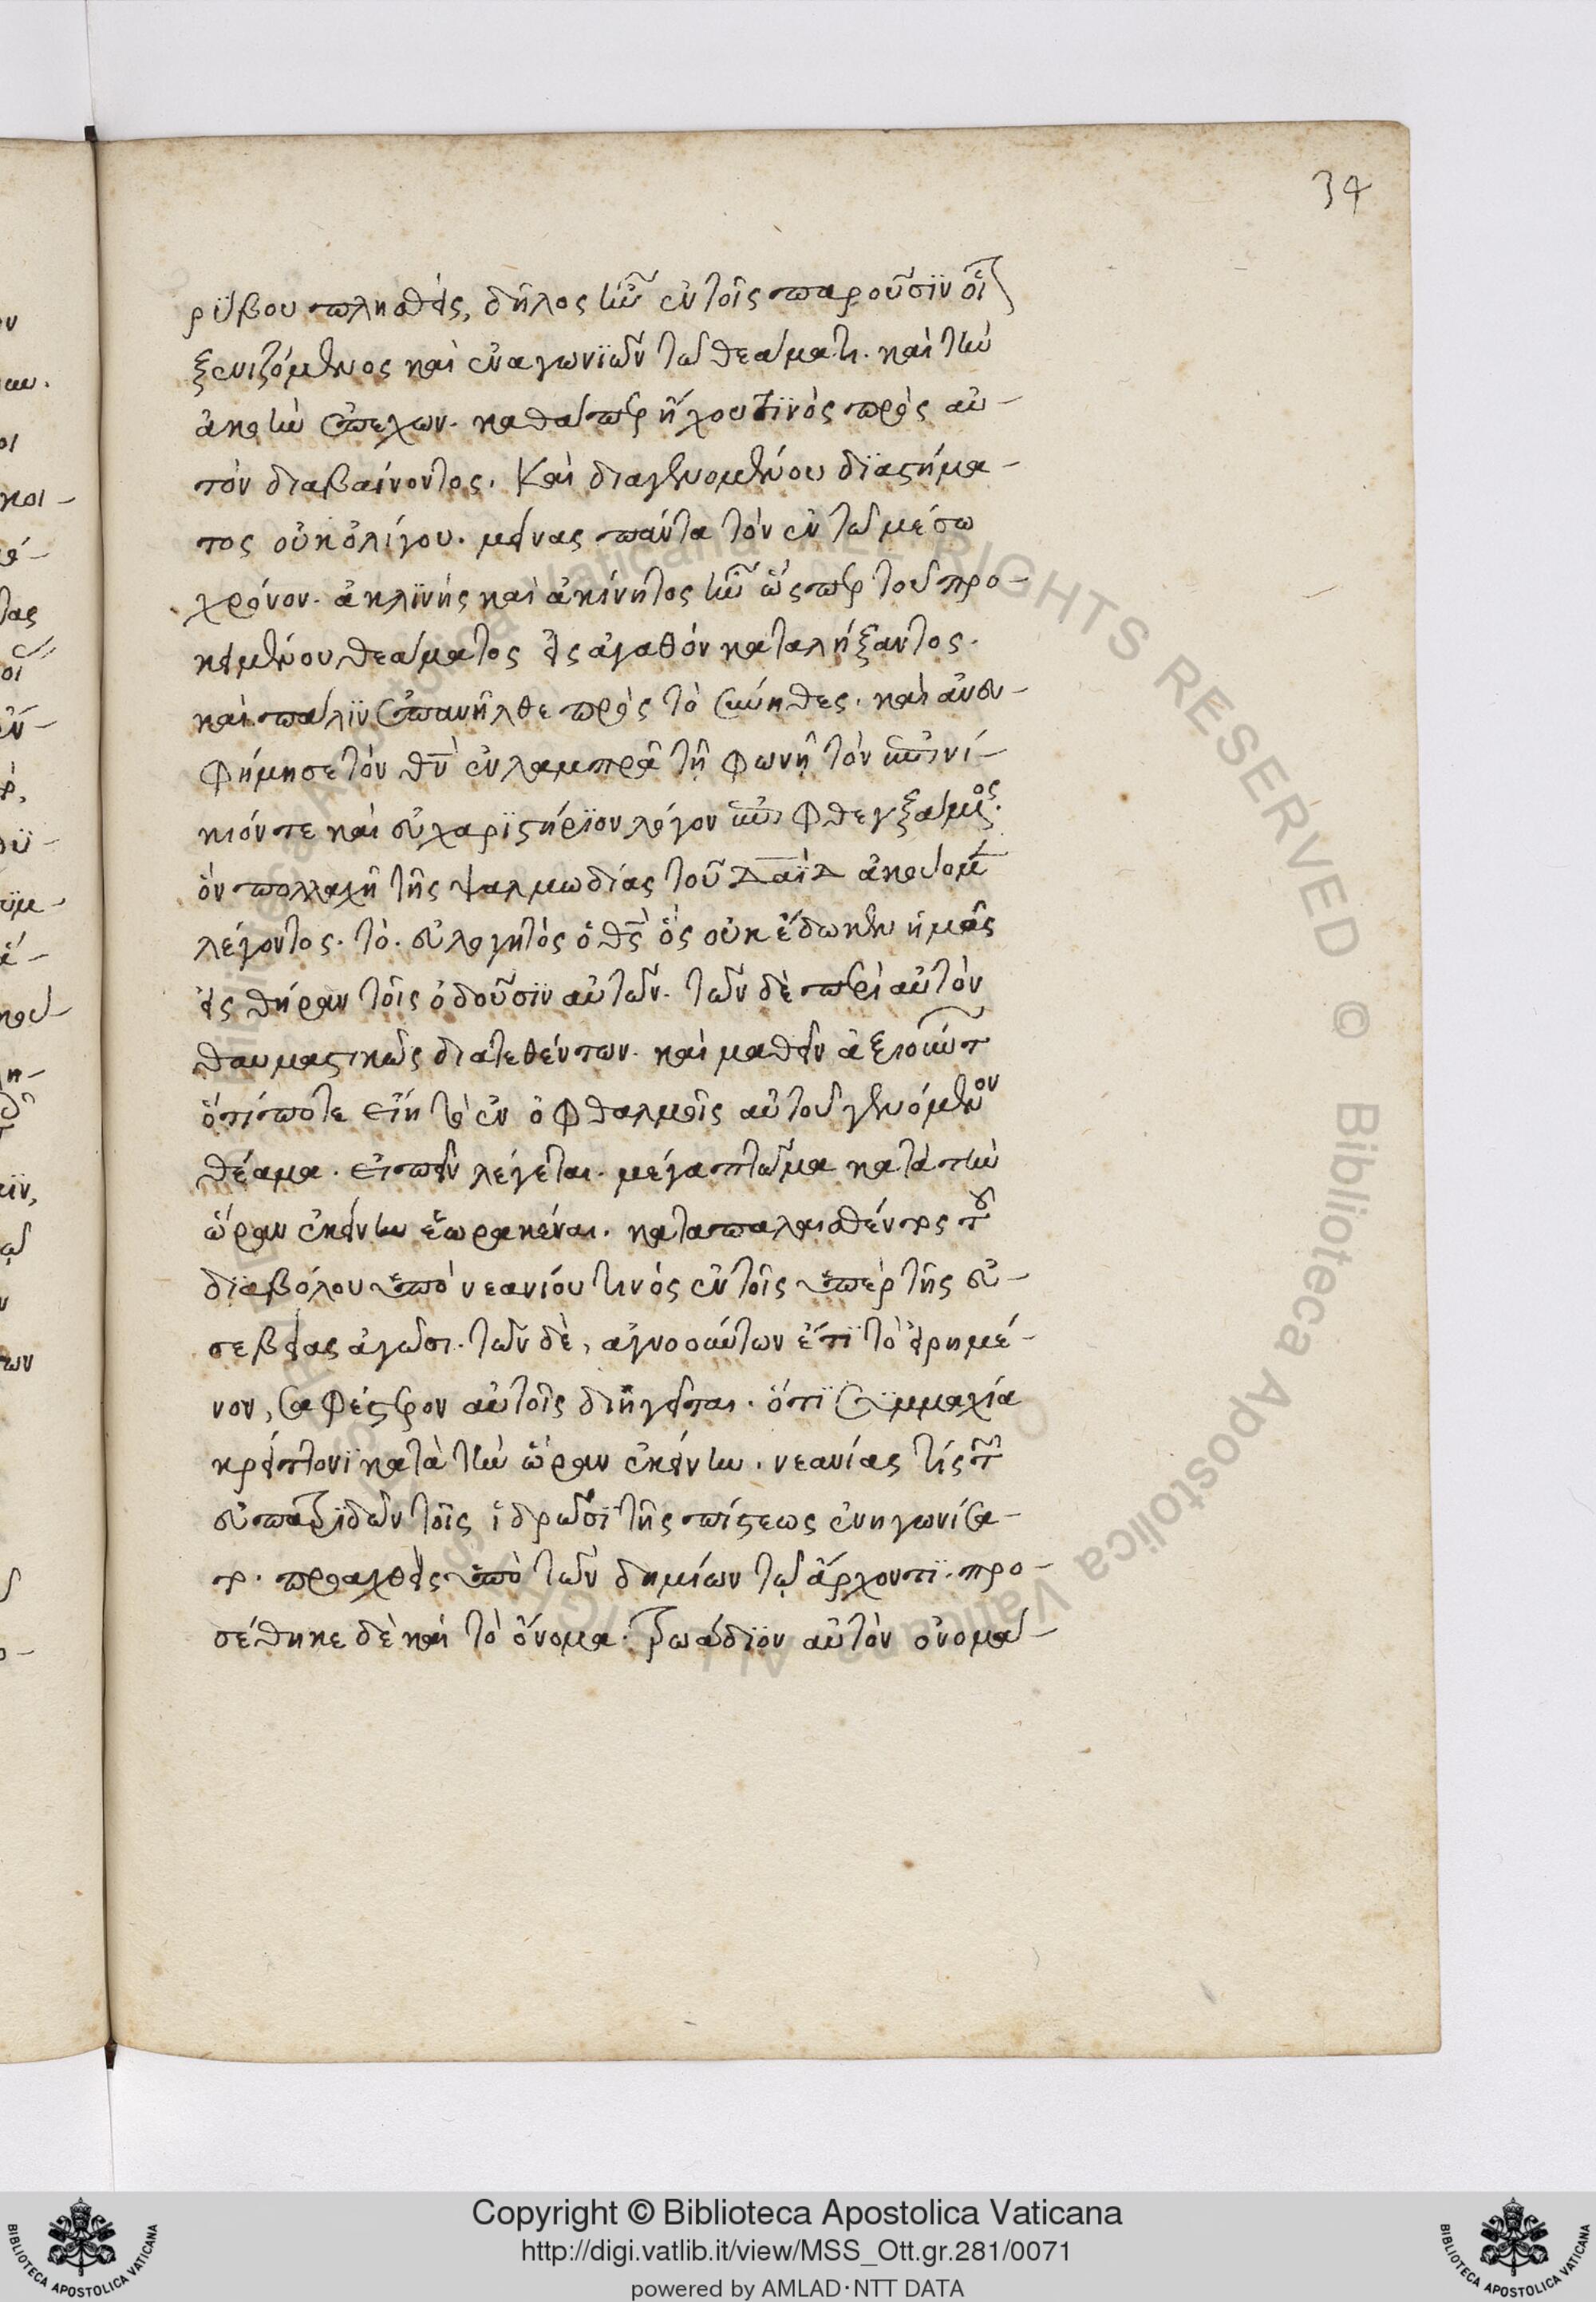 34
ρύβου πλησθεὶς, δῆλος ἦν ἐν τοῖς παροῦσϊν οἷς
ξενιζόμενος καὶ ἐναγωνϊῶν τῶ θεάματι. καὶ τὴν
ἀκοὴν ἐπέχων. καθάπερ ἤχου τϊνὸς πρὸς αὐ-
τὸν διαβαίνοντος. Καὶ διαγενομένου δϊαστήμα-
τος οὐκ ὀλίγου. μείνας πάντα τὸν ἐν τῶ μέσω
χρόνον. ἀκλϊνὴς καὶ ἀκίνητος ἦν ὥςπερ τοῦ προ-
κειμένου θεάματος εἰς ἀγαθὸν καταλήξαντος.
καὶ πάλϊν ἐπανῆλθε πρὸς τὸ σύνηθες. καὶ ἀνευ-
φήμησε τὸν θν̅ ἐν λαμπρᾶ τῆ φωνῆ τὸν ἐπινί-
κιόν τε καὶ εὐχαρϊστήρϊον λόγον φθεγξάμενος.
ὃν πολλαχῆ τῆς ψαλμωδίας τοῦ δα̅ΐδ̅ ἀκούομεν
λέγοντος. τὸ. εὐλογητὸς ὁ θς̅ ὃς οὐκ ἔδωκεν ἡμᾶς
εἰς θήραν τοῖς ὀδοῦσϊν αὐτῶν. τῶν δὲ περὶ αὐτὸν
θαυμαστικῶς διατεθέντων. καὶ μαθεῖν ἀξιούντων
ὅτί ποτε εἴη τὸ ἐν ὀφθαλμοῖς αὐτοῦ γενόμενον
θέαμα. εἰπεῖν λέγεται. μέγα πτῶμα κατὰ τὴν
ὥραν ἐκείνην ἑωρακέναι. καταπαλαισθέντος τοῦ
δϊαβόλου ὑπὸ νεανίου τινὸς ἐν τοῖς ὑπὲρ τῆς εὐ-
σεβείας ἀγῶσι. τῶν δὲ, ἀγνοούντων ἔτϊ τὸ εἰρημέ-
νον, σαφέστερον αὐτοῖς διηγεῖται. ὅτϊ συμμαχία
κρείττονϊ κατὰ τὴν ὥραν ἐκείνην. νεανίας τίς τῶν
εὐπατριδῶν τοῖς ἱδρῶσϊ τῆς πίστεως ἐνηγωνίσα-
το. προαχθεὶς ὑπὸ τῶν δημίων τῷ ἄρχοντϊ. προ-
σέθηκε δὲ καὶ τὸ ὄνομα. τρωάδϊον αὐτὸν ὀνομά-
Copyright © Biblioteca Apostolica Vaticana
http://digi.vatlib.it/view/MSS_Ott.gr.281/0071
powered by AMLAD·NTT DATA